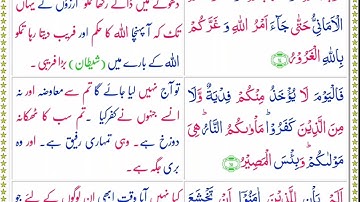 الْاَمَانِیُّ حَتّٰی جَآءَ اَمْرُ اللّٰهِ وَ غَرَّكُمْ
بِاللّٰهِ الْغَرُوْرُ
دھوکے میں ڈالے رکھا تمکو آرزوں نے یہاں
تک کہ آ پہنچا اللہ کا حکم اور فریب دیتا رہا تمکو
اللہ کے بارے میں (شیطان) بڑا فریبی۔
فَالْیَوْمَ لَا یُؤْخَذُ مِنْكُمْ فِدْیَةٌ وَّلَا
مِنَ الَّذِیْنَ كَفَرُوْا ؕ مَاْوٰىكُمُ النَّارُ ؕ هِیَ
مَوْلٰىكُمْ ؕ وَ بِئْسَ الْمَصِیْرُ
تو آج نہیں لیا جائے گا تم سے معاوضہ اور نہ
ان سے جنہوں نے کفر کیا ۔ تم سب کا ٹھکانہ
دوزخ ہے۔ وہی تمہاری رفیق ہے۔ اور وہ
بری جگہ ہے۔
اَلَمْ یَاْنِ لِلَّذِیْنَ اٰمَنُوْۤا اَنْ تَخْشَعَ
کیا نہیں آیا وقت ابھی ان لوگوں کے لئے جو